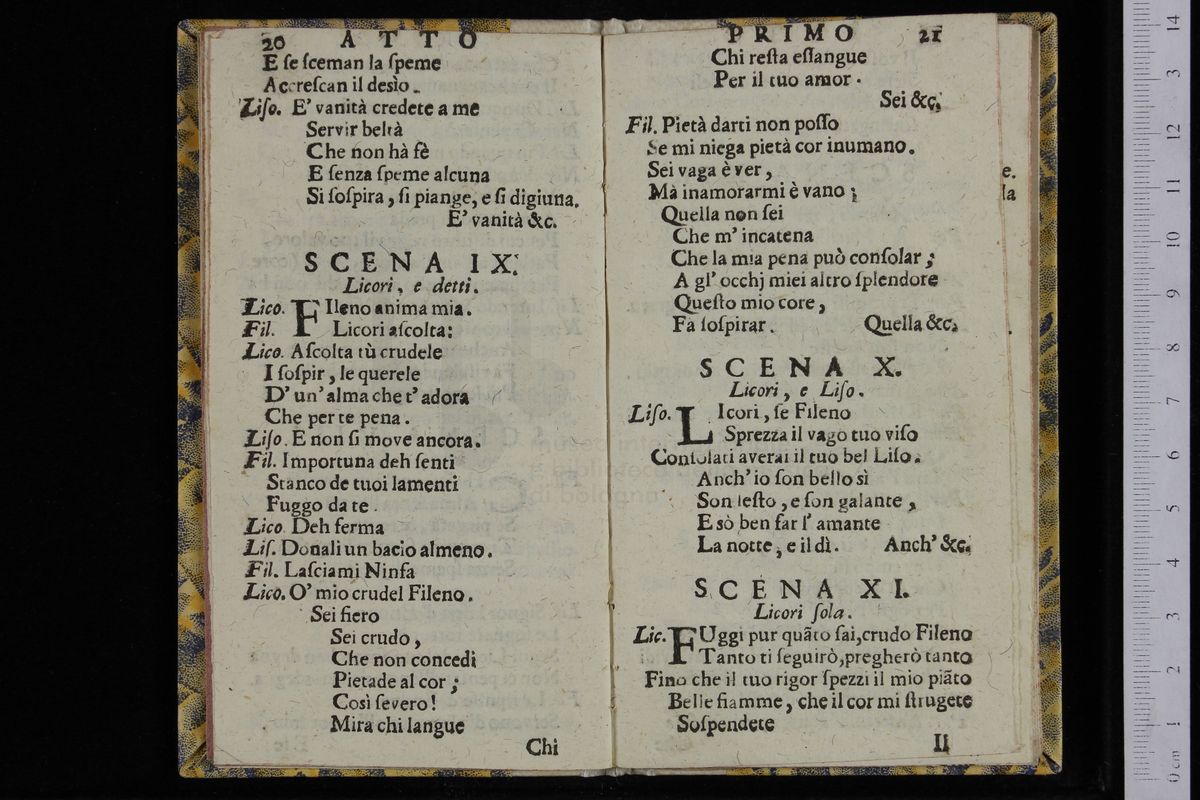 20 ATTO
E ſe ſceman la ſpeme
Accreſcan il desìo.
Liſo. E' vanità credete a me
Servir beltà
Che non hà fè
E ſenza ſpeme alcuna
Si ſoſpira, ſi piange, e ſi digiuna.
E' vanità &c.
SCENA IX.
Licori, e detti.
Lico. FIleno anima mia.
Fil. Licori aſcolta:
Lico. Aſcolta tù crudele
I ſoſpir, le querele
D' un' alma che t' adora
Che per te pena.
Liſo. E non ſi move ancora.
Fil. Importuna deh ſenti
Stanco de tuoi lamenti
Fuggo da te.
Lico. Deh ferma
Liſ. Donali un bacio almeno.
Fil. Laſciami Ninfa
Lico. O' mio crudel Fileno.
Sei fiero
Sei crudo,
Che non concedi
Pietade al cor;
Così ſevero!
Mira chi langue
Chi
PRIMO 21
Chi reſta eſſangue
Per il tuo amor.
Sei &c.
Fil. Pietà darti non poſſo
Se mi niega pietà cor inumano.
Sei vaga è ver,
Mà inamorarmi è vano;
Quella non ſei
Che m' incatena
Che la mia pena può conſolar;
A gl' occhj miei altro ſplendore
Queſto mio core,
Fa ſoſpirar. Quella &c.
SCENA X.
Licori, e Liſo.
Liſo. LIcori, ſe Fileno
Sprezza il vago tuo viſo
Conſolati averai il tuo bel Liſo.
Anch' io ſon bello sì
Son leſto, e ſon galante,
E sò ben far l' amante
La notte, e il dì. Anch' &c.
SCENA XI.
Licori ſola.
Lic. FUggi pur quãto ſai, crudo Fileno
Tanto ti ſeguirò, pregherò tanto
Fino che il tuo rigor ſpezzi il mio piãto
Belle fiamme, che il cor mi ſtrugete
Soſpendete
Il
e.
la
0 cm 1 2 3 4 5 6 7 8 9 10 11 12 13 14